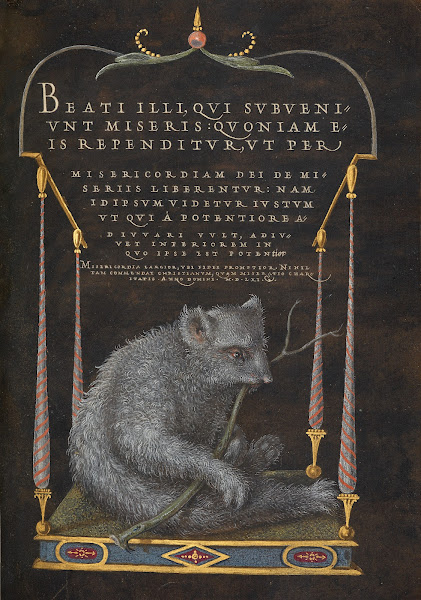 BEATI ILLI, QVI SVBVENI〃
VNT MISERIS: QVONIAM E〃
IS REPENDITVR, VT PER
MISERICORDIAM DEI DE MI〃
SERIIS LIBERENTVR: NAM
ID IPSVM VIDETVR IVSTVM
VT QVI Á POTENTIORE A〃
DIVVARI VVLT, ADIV〃
VET INFERIOREM IN
QVO IPSE EST POTENTIOR
MISERICORDIA LARGIOR, VBI FIDES PROMPTIOR. NIHIL
TAM COMMENDAT CHRISTIANVM, QVAM MISERATIO CHARI
TATIS. ANNO DOMINI. M.D.LXI.